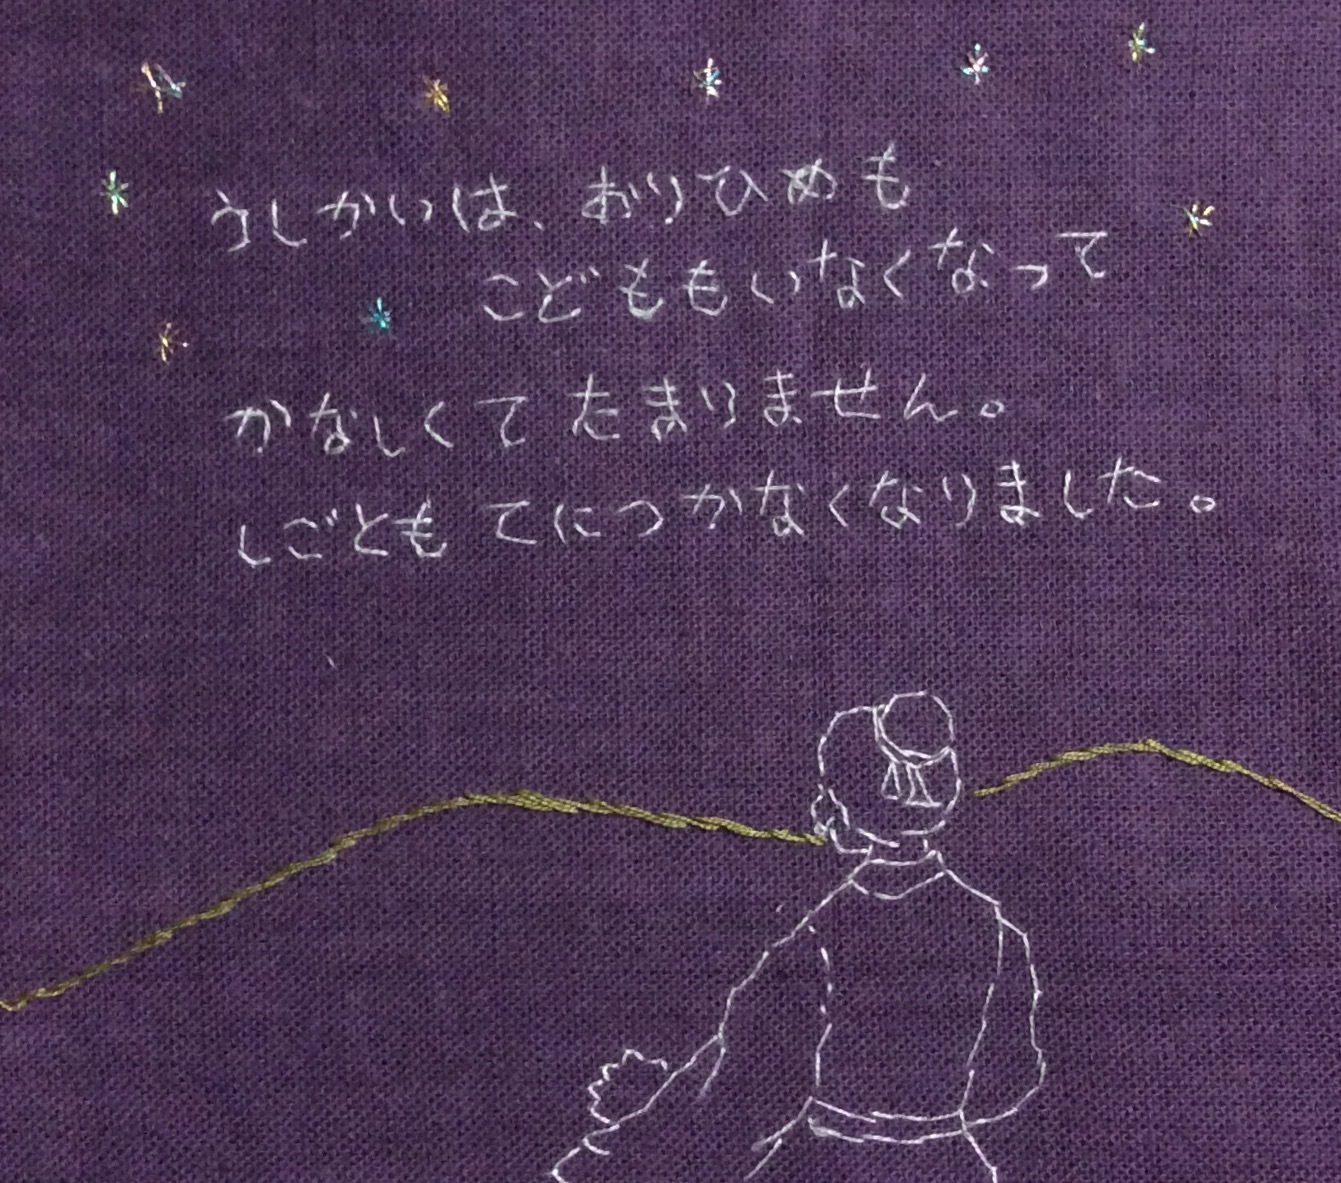 うしかいは、おりひめも
こどももいなくなって
かなしくて たまりません。
しごとも てにつかなくなりました。